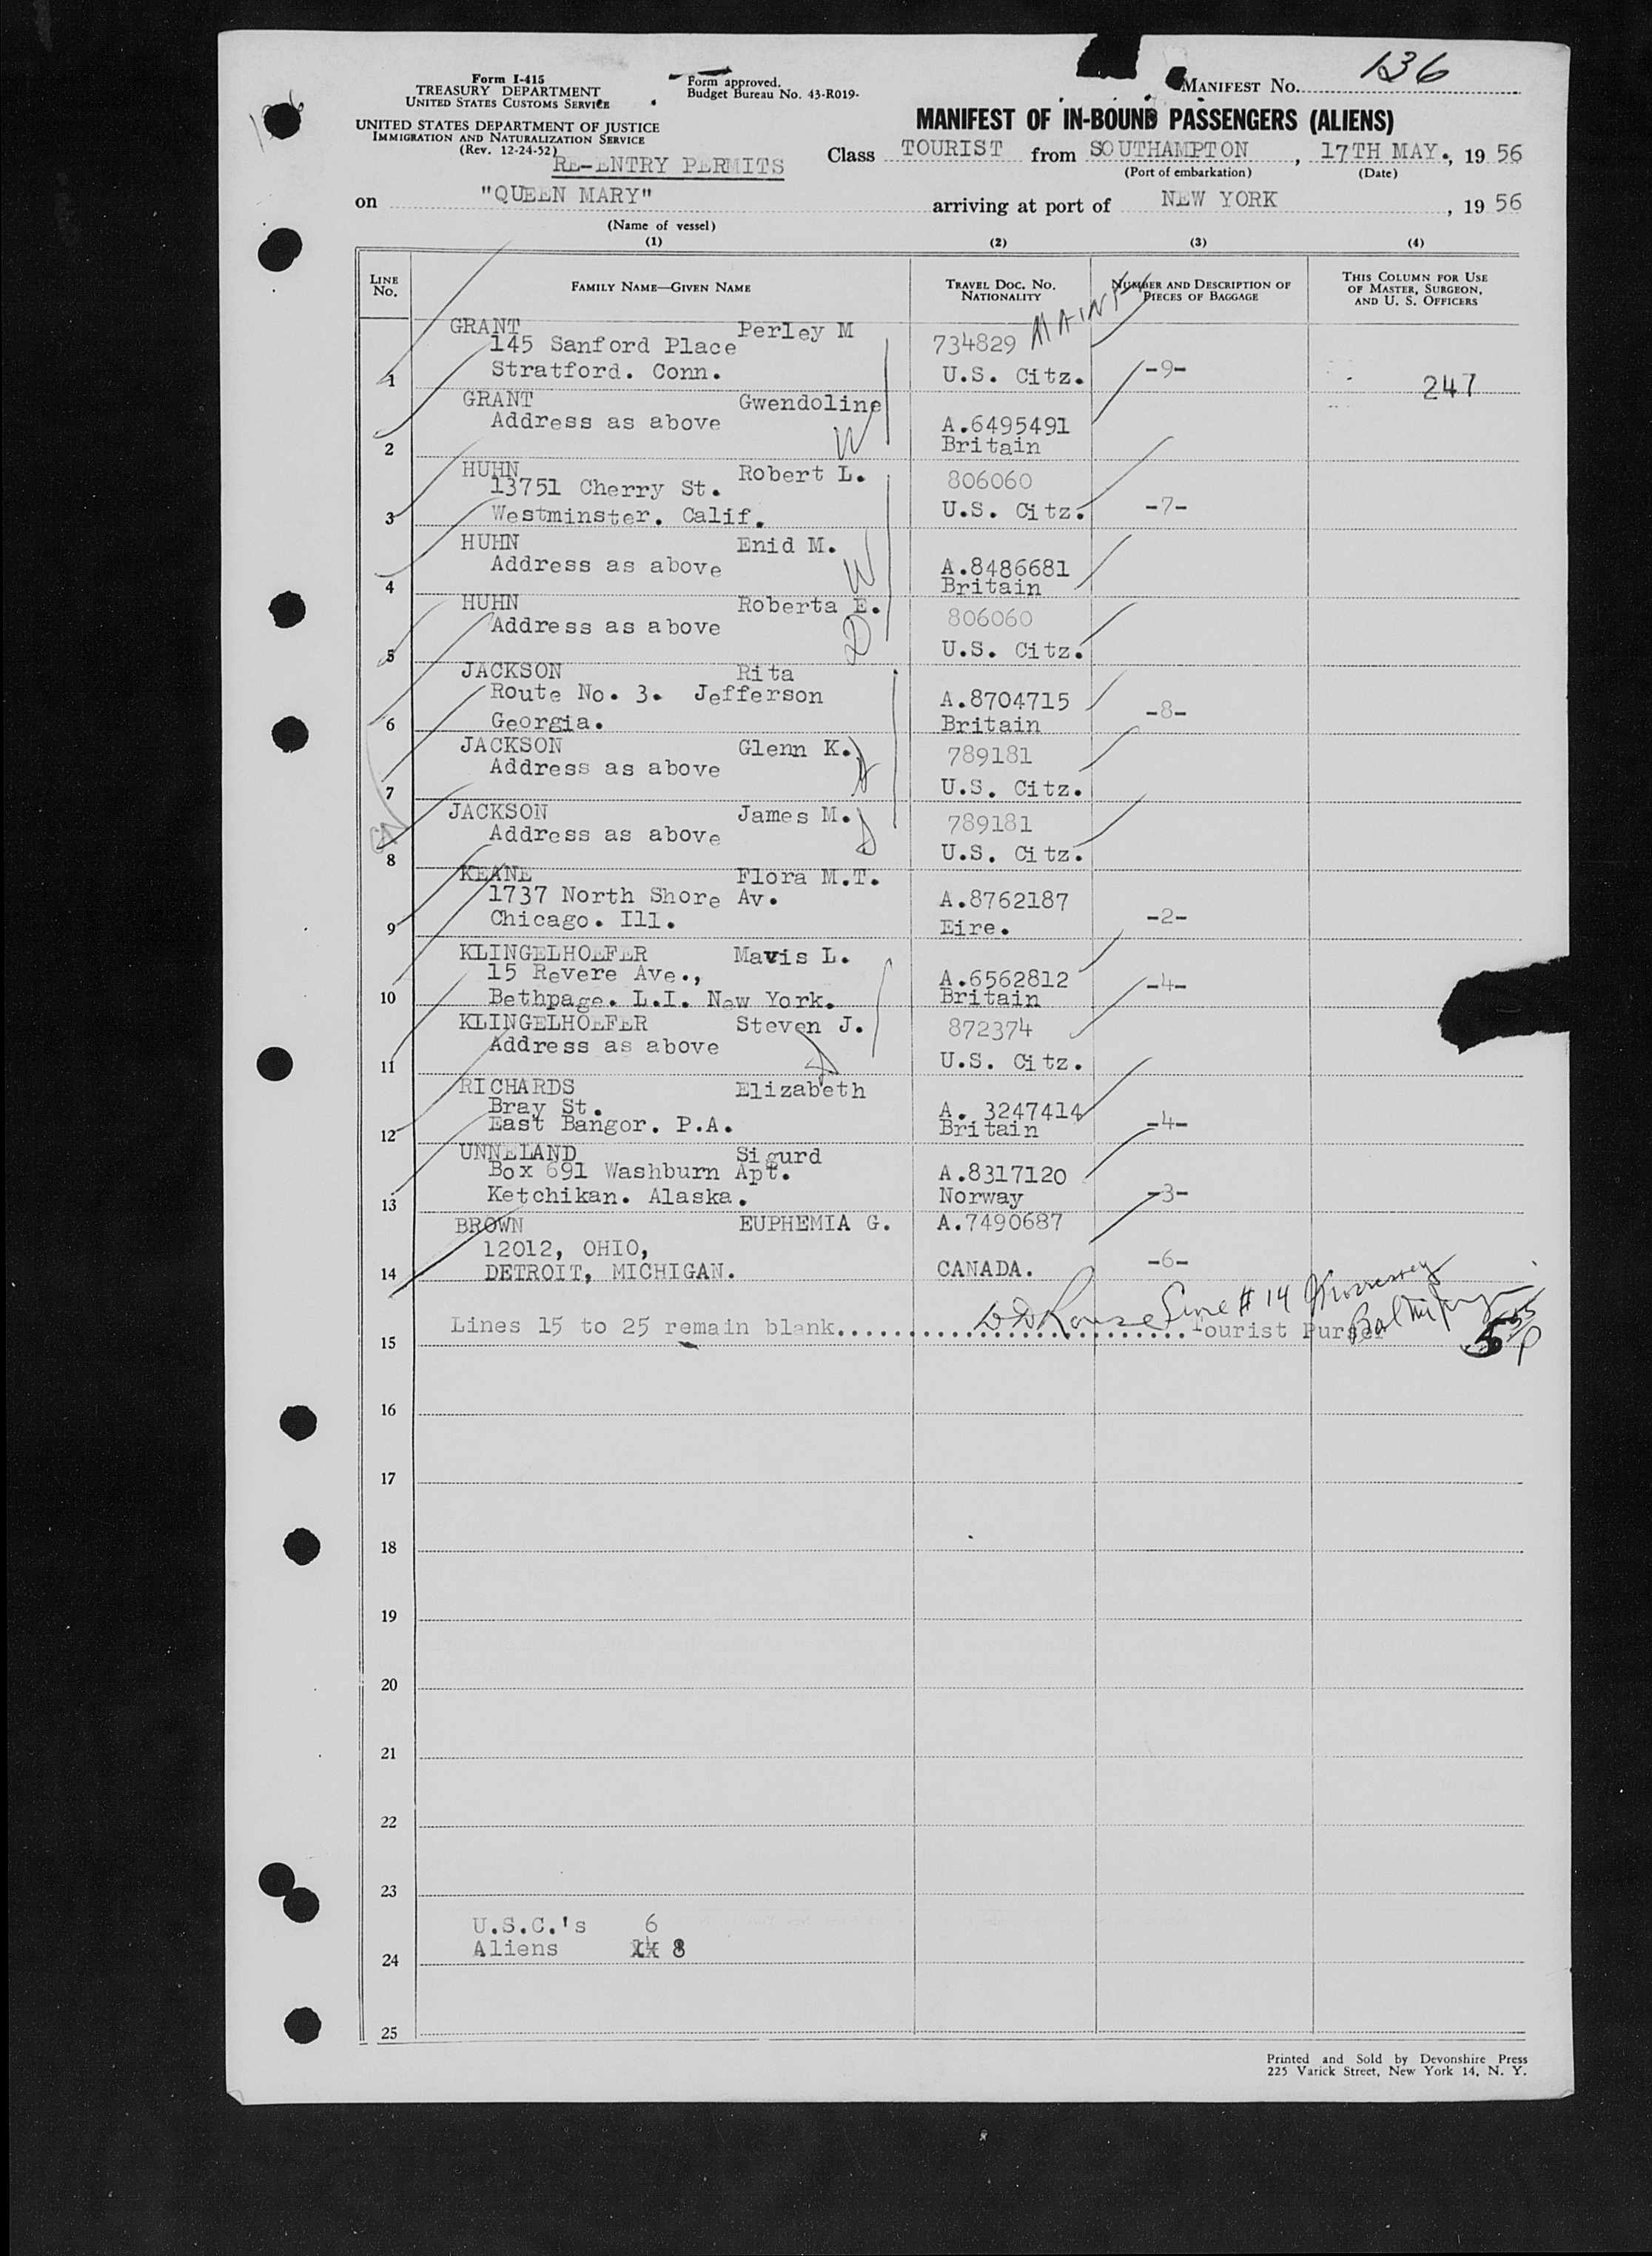 Form I-415
TREASURY DEPARTMENT
UNITED STATES CUSTOMS SERVICE
Form approved.
Budget Bureau No. 43-R019-
MANIFEST No. 136
UNITED STATES DEPARTMENT OF JUSTICE
IMMIGRATION AND NATURALIZATION SERVICE
(Rev. 12-24-52)
RE-ENTRY PERMITS
MANIFEST OF IN-BOUND PASSENGERS (ALIENS)
Class TOURIST from SOUTHAMPTON, 17TH MAY., 19 56
(Port of embarkation) (Date)
on "QUEEN MARY" arriving at port of NEW YORK, 19 56
(Name of vessel)
(1) (2) (3) (4)
LINE No. FAMILY NAME—GIVEN NAME TRAVEL DOC. No. NATIONALITY NUMBER AND DESCRIPTION OF PIECES OF BAGGAGE THIS COLUMN FOR USE OF MASTER, SURGEON, AND U. S. OFFICERS
GRANT Perley M
145 Sanford Place 734829
1 Stratford. Conn. U.S. Citz. -9- 247
GRANT Gwendoline
Address as above A.6495491
2 W Britain
HUHN Robert L. 806060
13751 Cherry St.
3 Westminster. Calif. U.S. Citz. -7-
HUHN Enid M.
Address as above W A.8486681
4 Britain
HUHN Roberta E. 806060
Address as above D
5 U.S. Citz.
JACKSON Rita
Route No. 3. Jefferson A.8704715
6 Georgia. Britain -8-
JACKSON Glenn K. 789181
Address as above D
7 U.S. Citz.
JACKSON James M. 789181
Address as above D
8 U.S. Citz.
KEANE Flora M.T.
1737 North Shore Av. A.8762187
9 Chicago. Ill. Eire. -2-
KLINGELHOEFER Mavis L.
15 Revere Ave., A.6562812
10 Bethpage. L.I. New York. Britain -4-
KLINGELHOEFER Steven J. 872374
Address as above D
11 U.S. Citz.
RICHARDS Elizabeth
Bray St. A. 3247414
12 East Bangor. P.A. Britain -4-
UNNELAND Sigurd
Box 691 Washburn Apt. A.8317120
13 Ketchikan. Alaska. Norway -3-
BROWN EUPHEMIA G. A.7490687
12012, OHIO,
14 DETROIT, MICHIGAN. CANADA. -6-
Line # 14
15 Lines 15 to 25 remain blank.................................Tourist Purser
16
17
18
19
20
21
22
23
U.S.C.'s 6
24 Aliens 8
25
Printed and Sold by Devonshire Press
225 Varick Street, New York 14, N. Y.